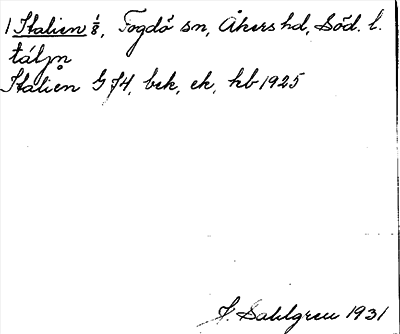 1 Italien 1/8, Fogdö sn, Åkers hd, Söd. l.
tåljn
Italien G J4, bek, ek, hb 1925
J. Sahlgren 1931